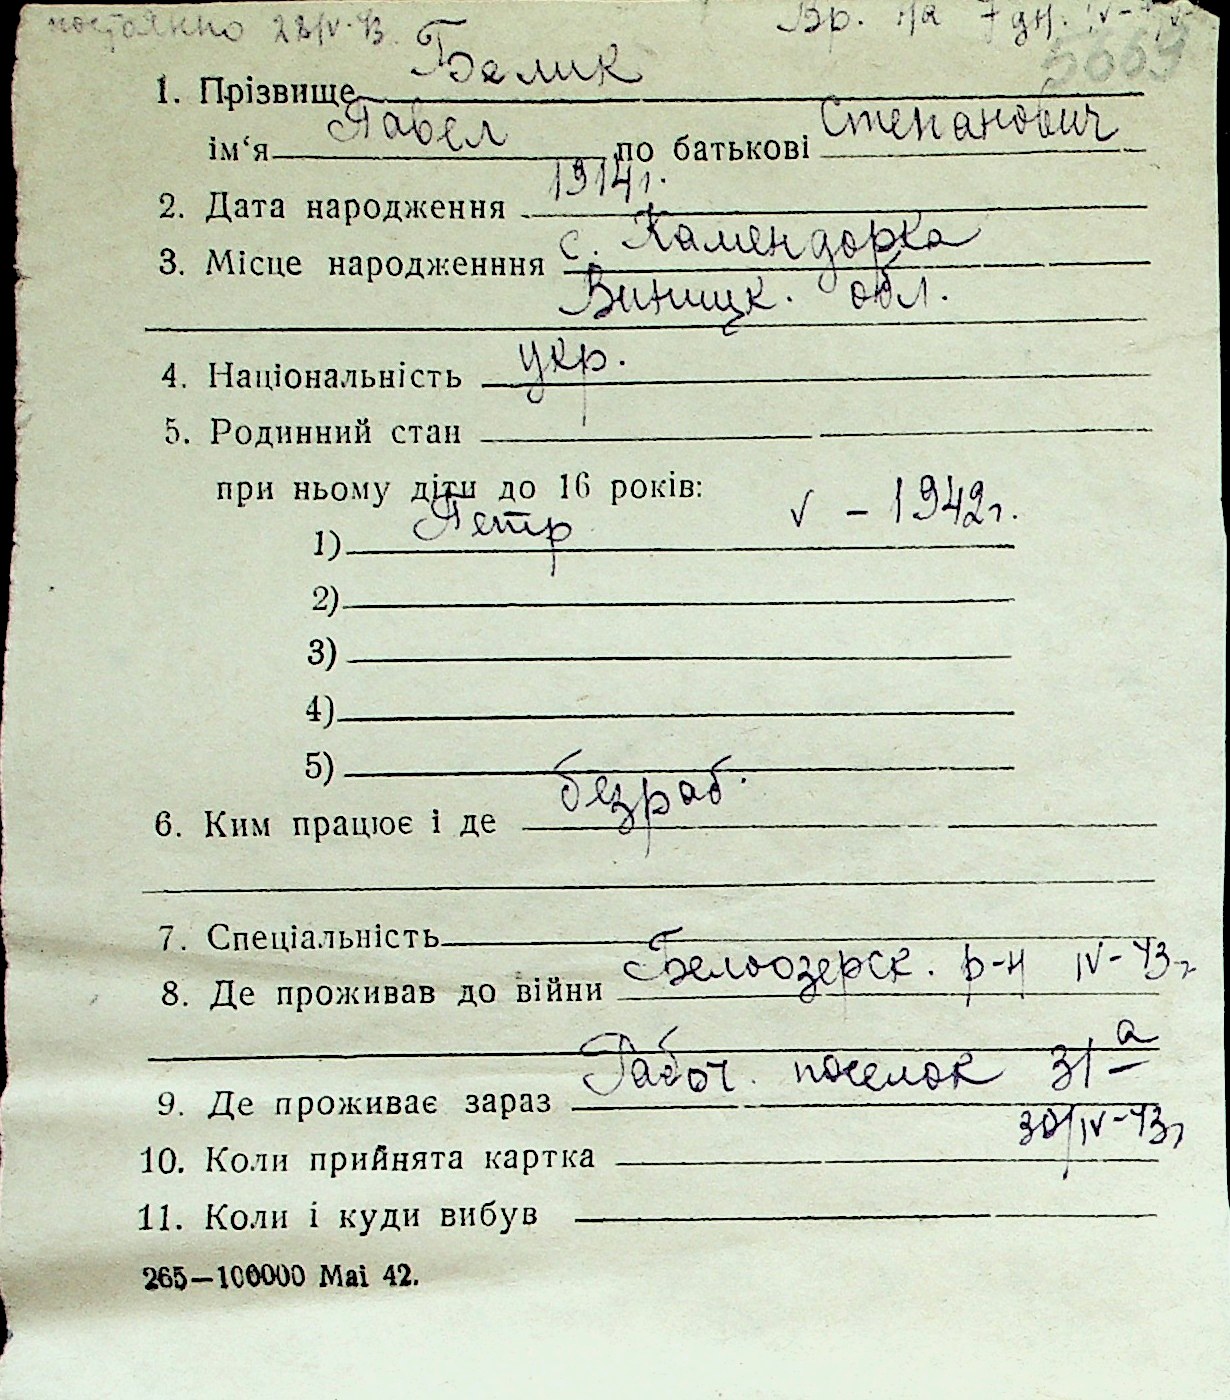 постоянно 28/V-43. Вр. на 7 дн.
5669
Белик
1. Прізвище
Павел Степанович
ім‘я по батькові
1914г.
2. Дата народження
с. Камендорка
3. Місце народженння
Виницк. обл.
укр.
4. Національність
5. Родинний стан
при ньому діти до 16 років:
1) Петр √ – 1942г.
2)
3)
4)
5)
безраб.
6. Ким працює і де
7. Спеціальність
Белоозерск. р-н IV-43г
8. Де проживав до війни
Рабоч. поселок 31 а
9. Де проживає зараз
30/IV-43г
10. Коли прийнята картка
11. Коли і куди вибув
265—100000 Mai 42.